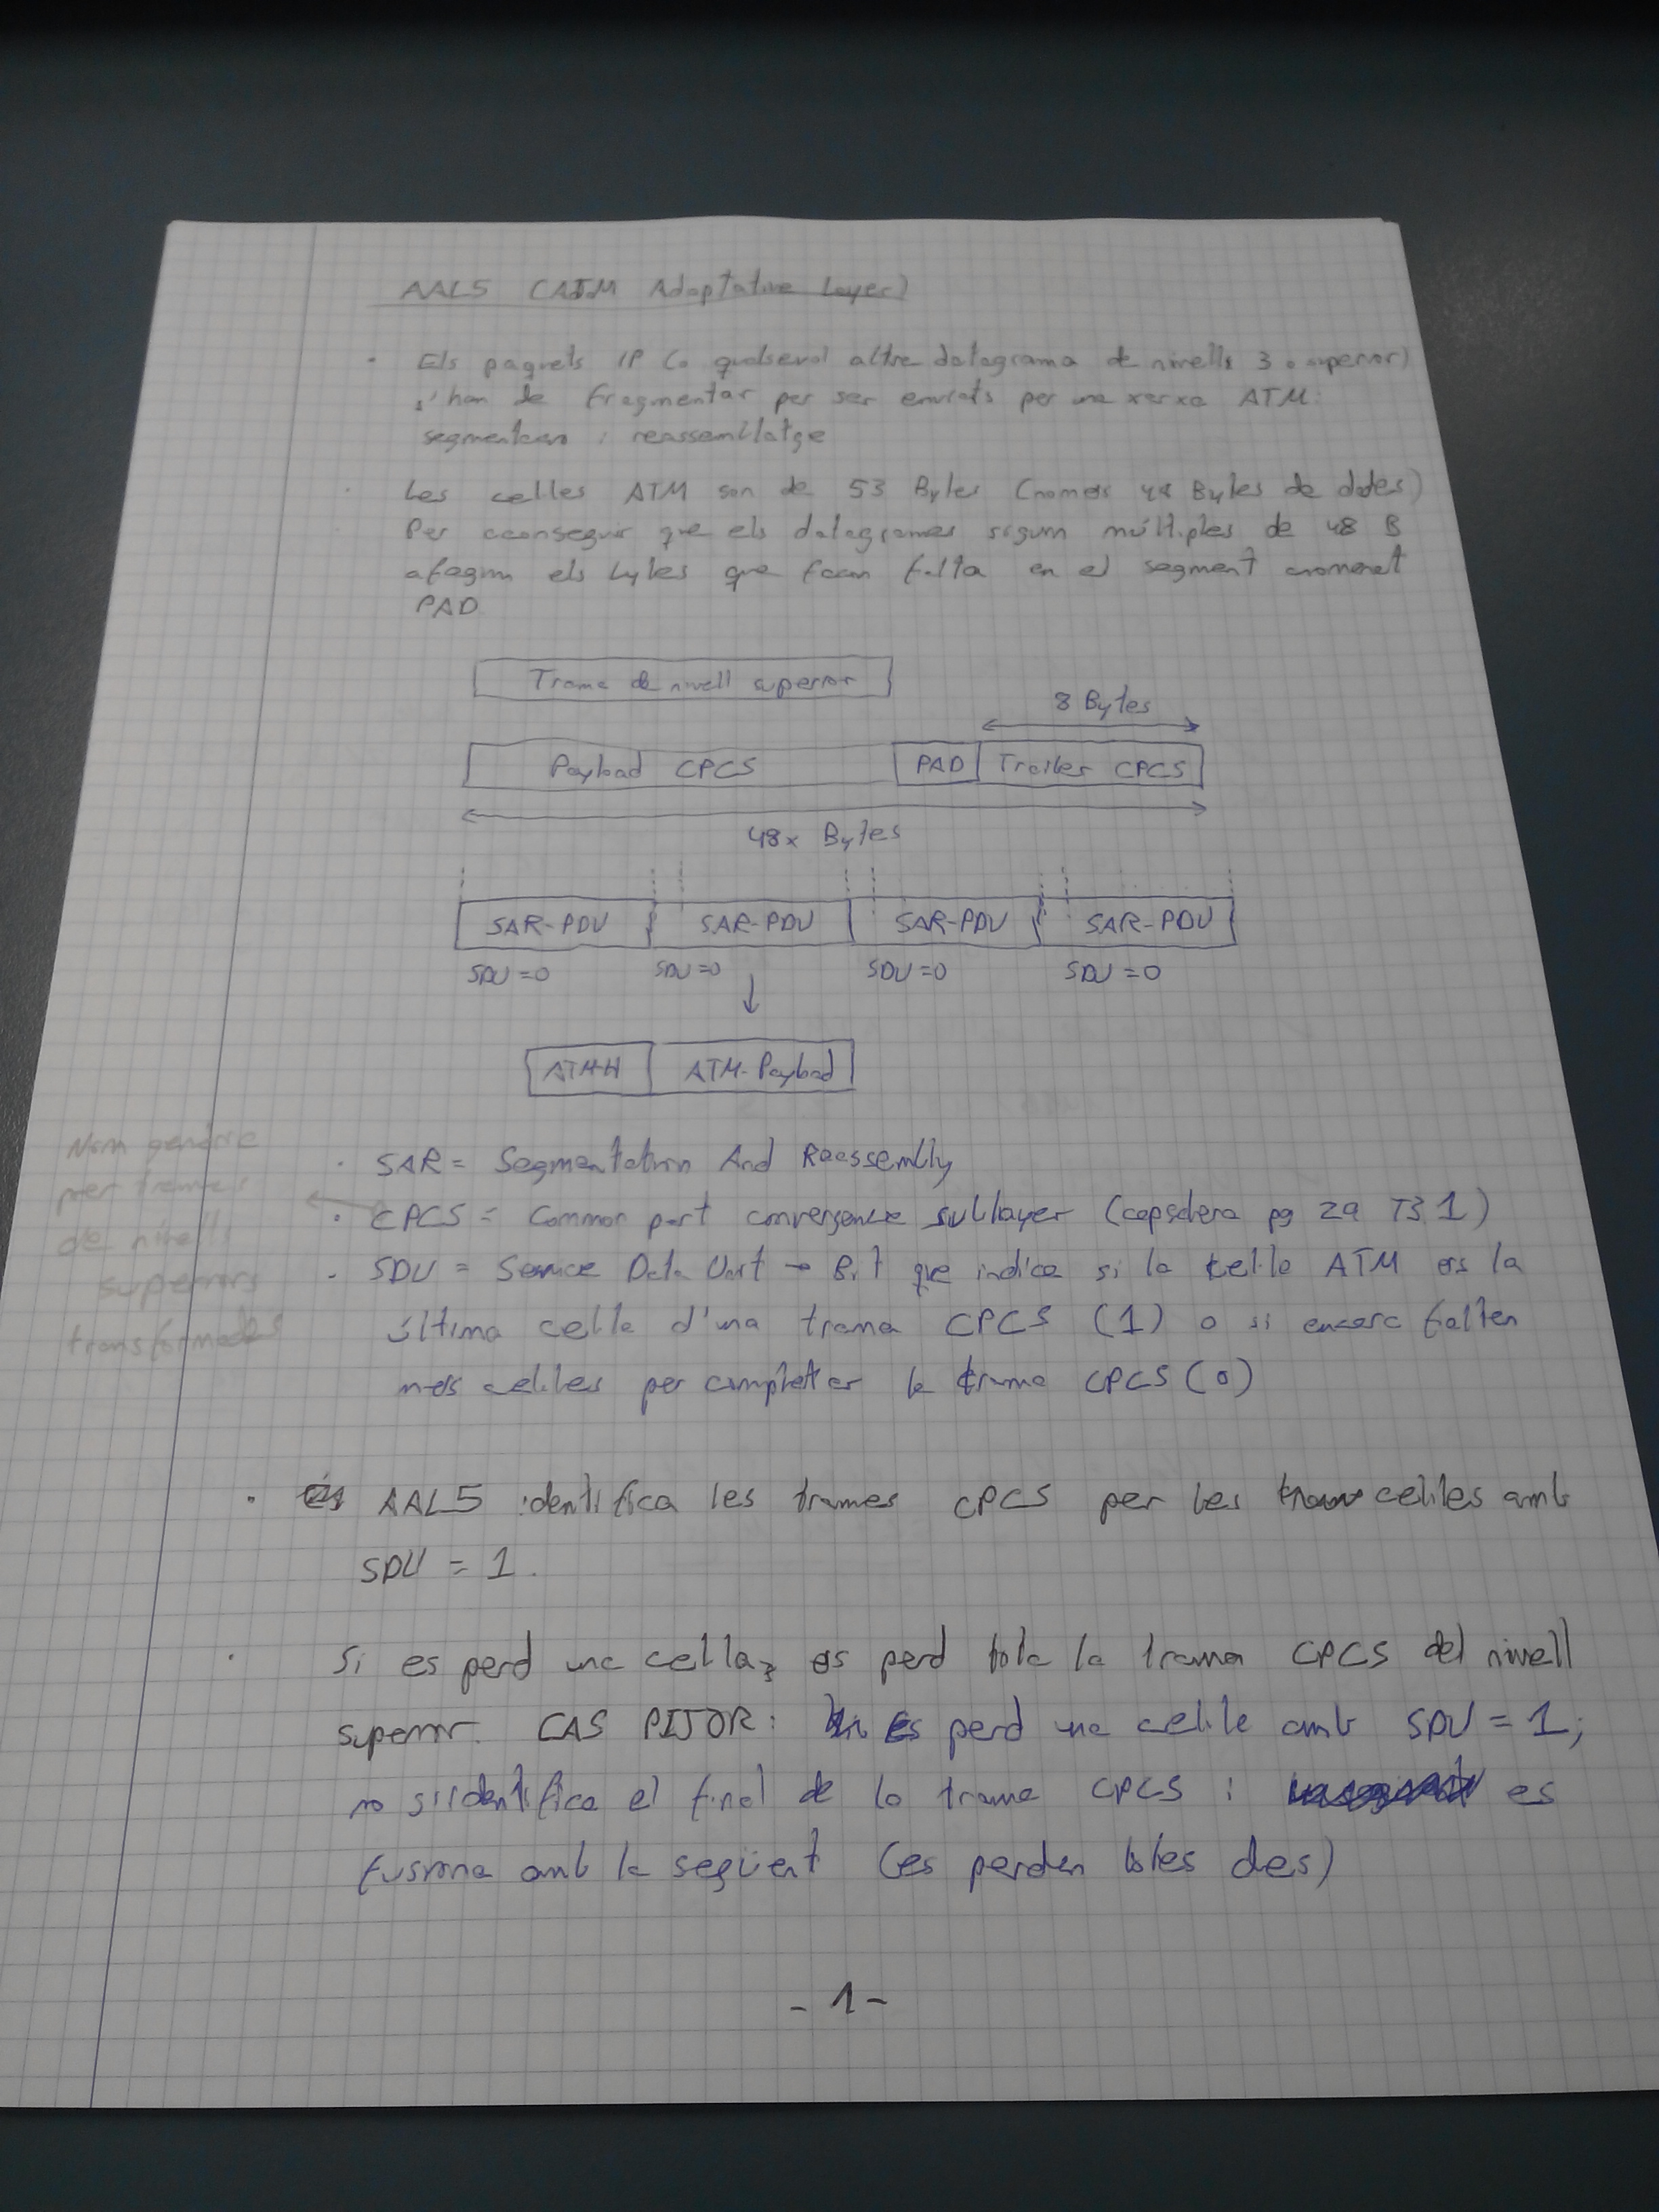 AAL5 (ATM Adaptative Layer)
· Els paquets IP (o qualsevol altre datagrama de nivells 3 o superior)
s'han de fragmentar per ser enviats per una xarxa ATM:
segmentacio i reassemblatge
· Les celles ATM son de 53 Bytes (nomes 48 Bytes de dades)
Per aconseguir que els datagrames siguin múltiples de 48 B
afegim els bytes que facin falta en el segment anomenat
PAD
Trama de nivell superior
8 Bytes
Payload CPCS PAD Trailer CPCS
48x Bytes
SAR-PDU SAR-PDU SAR-PDU SAR-PDU
SDU=0 SDU=0 SDU=0 SDU=0
ATM-H ATM-Payload
Nom genèric
per trames
de nivells
superiors
transformades
· SAR = Segmentation And Reassembly
· CPCS = Common part convergence sublayer (capsalera pg 29 T3.1)
· SDU = Service Data Unit → Bit que indica si la cel·la ATM es la
última cella d'una trama CPCS (1) o si encara falten
més cel·les per completar la trama CPCS (0)
· AAL5 identifica les trames CPCS per les cel·les amb
SDU = 1.
· Si es perd una cella, es perd tota la trama CPCS del nivell
superior. CAS PITJOR: Es perd una cel·la amb SDU = 1;
no s'identifica el final de la trama CPCS i es
fusiona amb la següent (es perden totes dues)
- 1 -